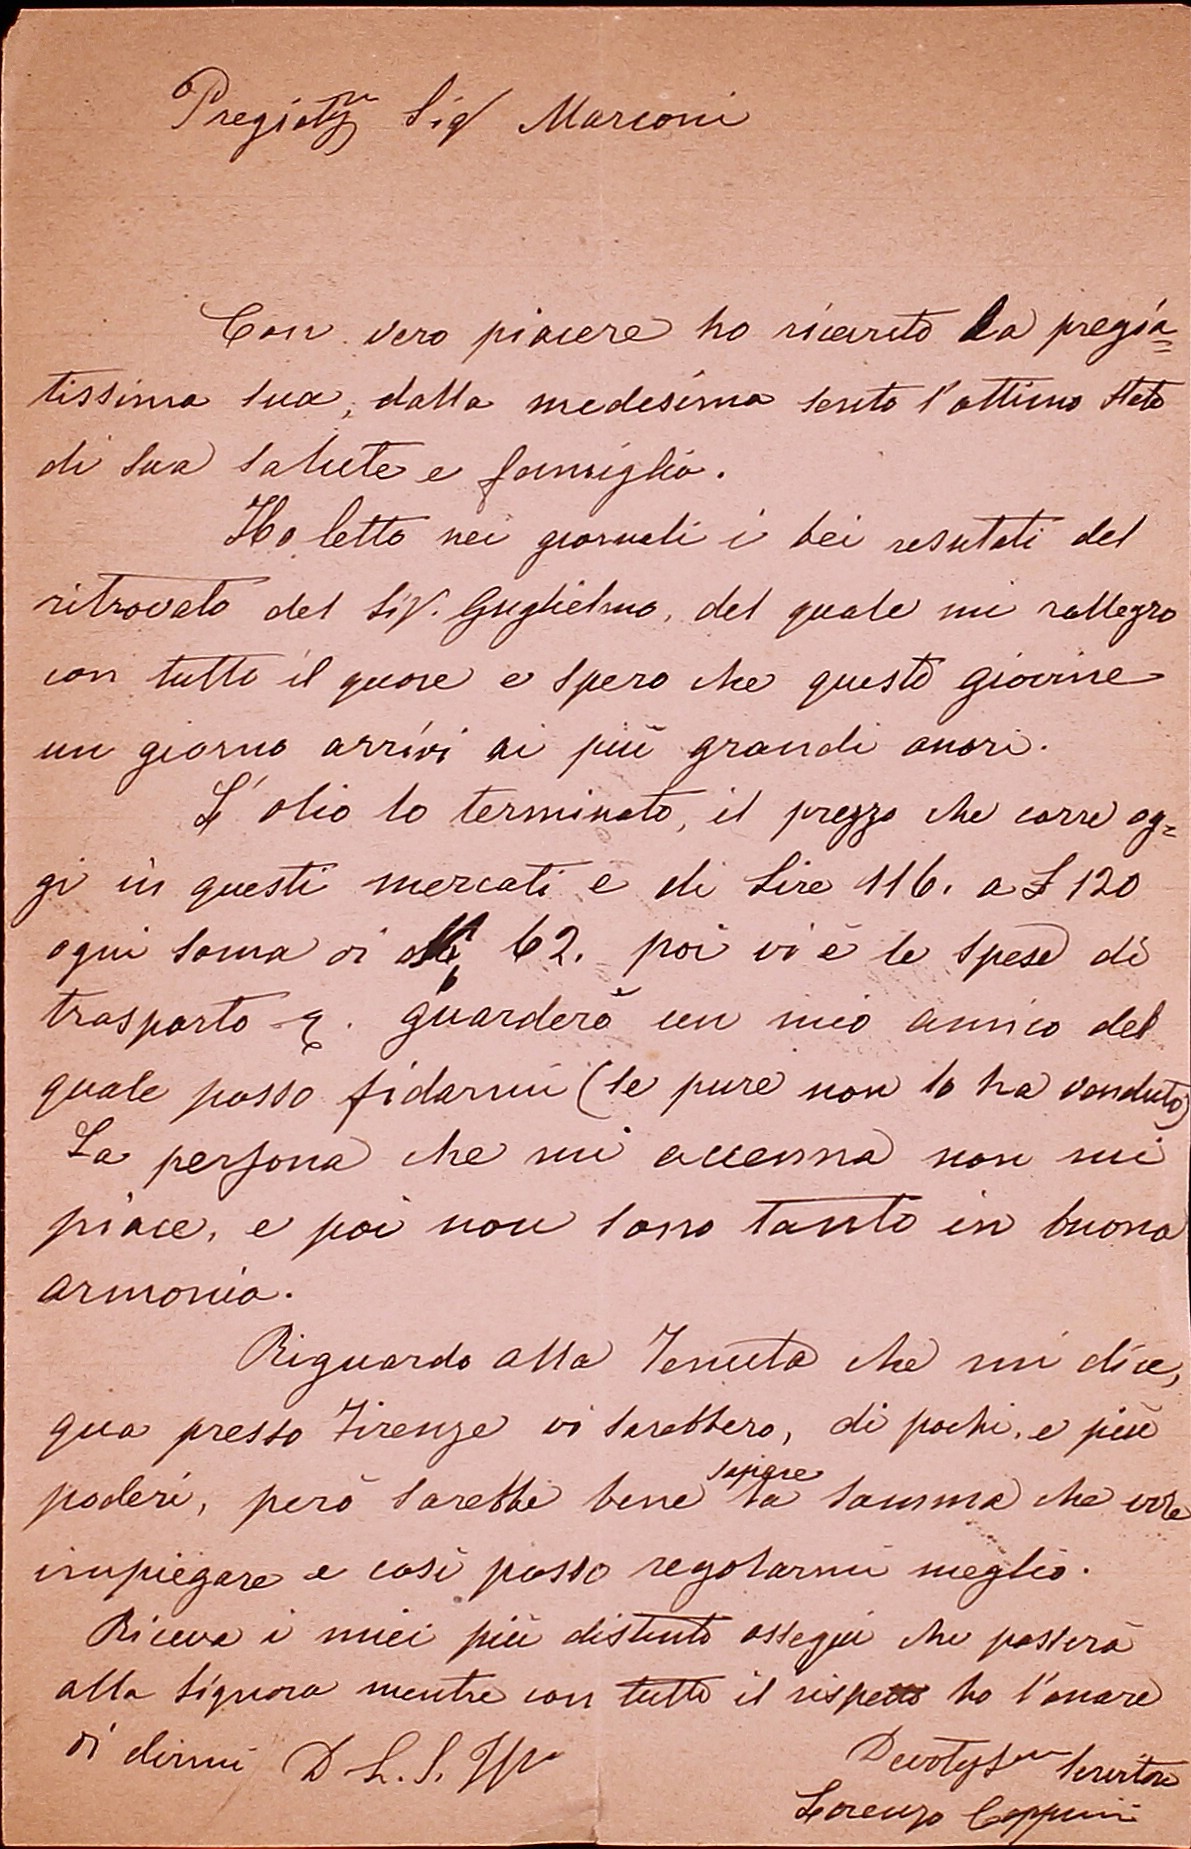 Pregiatmo Sig Marconi
Con vero piacere ho ricevuto la pregia=
tissima sua, dalla medesima sento l'ottimo stato
di sua salute e famiglia.
Ho letto nei giornali i bei resutati del
ritrovato del Sig. Guglielmo, del quale mi rallegro
con tutto il quore e spero che questo giovine
un giorno arrivi ai più grandi onori.
L'olio lo terminato, il prezzo che corre og=
gi in questi mercati è di Lire 116. a £ 120
ogni soma di 62. poi vi è le spese di
trasporto guarderò un mio amico del
quale posso fidarmi (se pure non lo ha venduto)
La persona che mi accenna non mi
piace, e poi non sono tanto in buona
armonia.
Riguardo alla Tenuta che mi dice,
qua presso Firenze vi sarebbero, di pochi, e più
poderi, però sarebbe bene sapere la somma che vole
impiegare e così posso regolarmi meglio.
Riceva i miei più distinti ossequi che passerà
alla Signora mentre con tutto il rispetto ho l'onore
di dirmi D. L. S. Ill
Devotissmo Servitore
Lorenzo Coppini